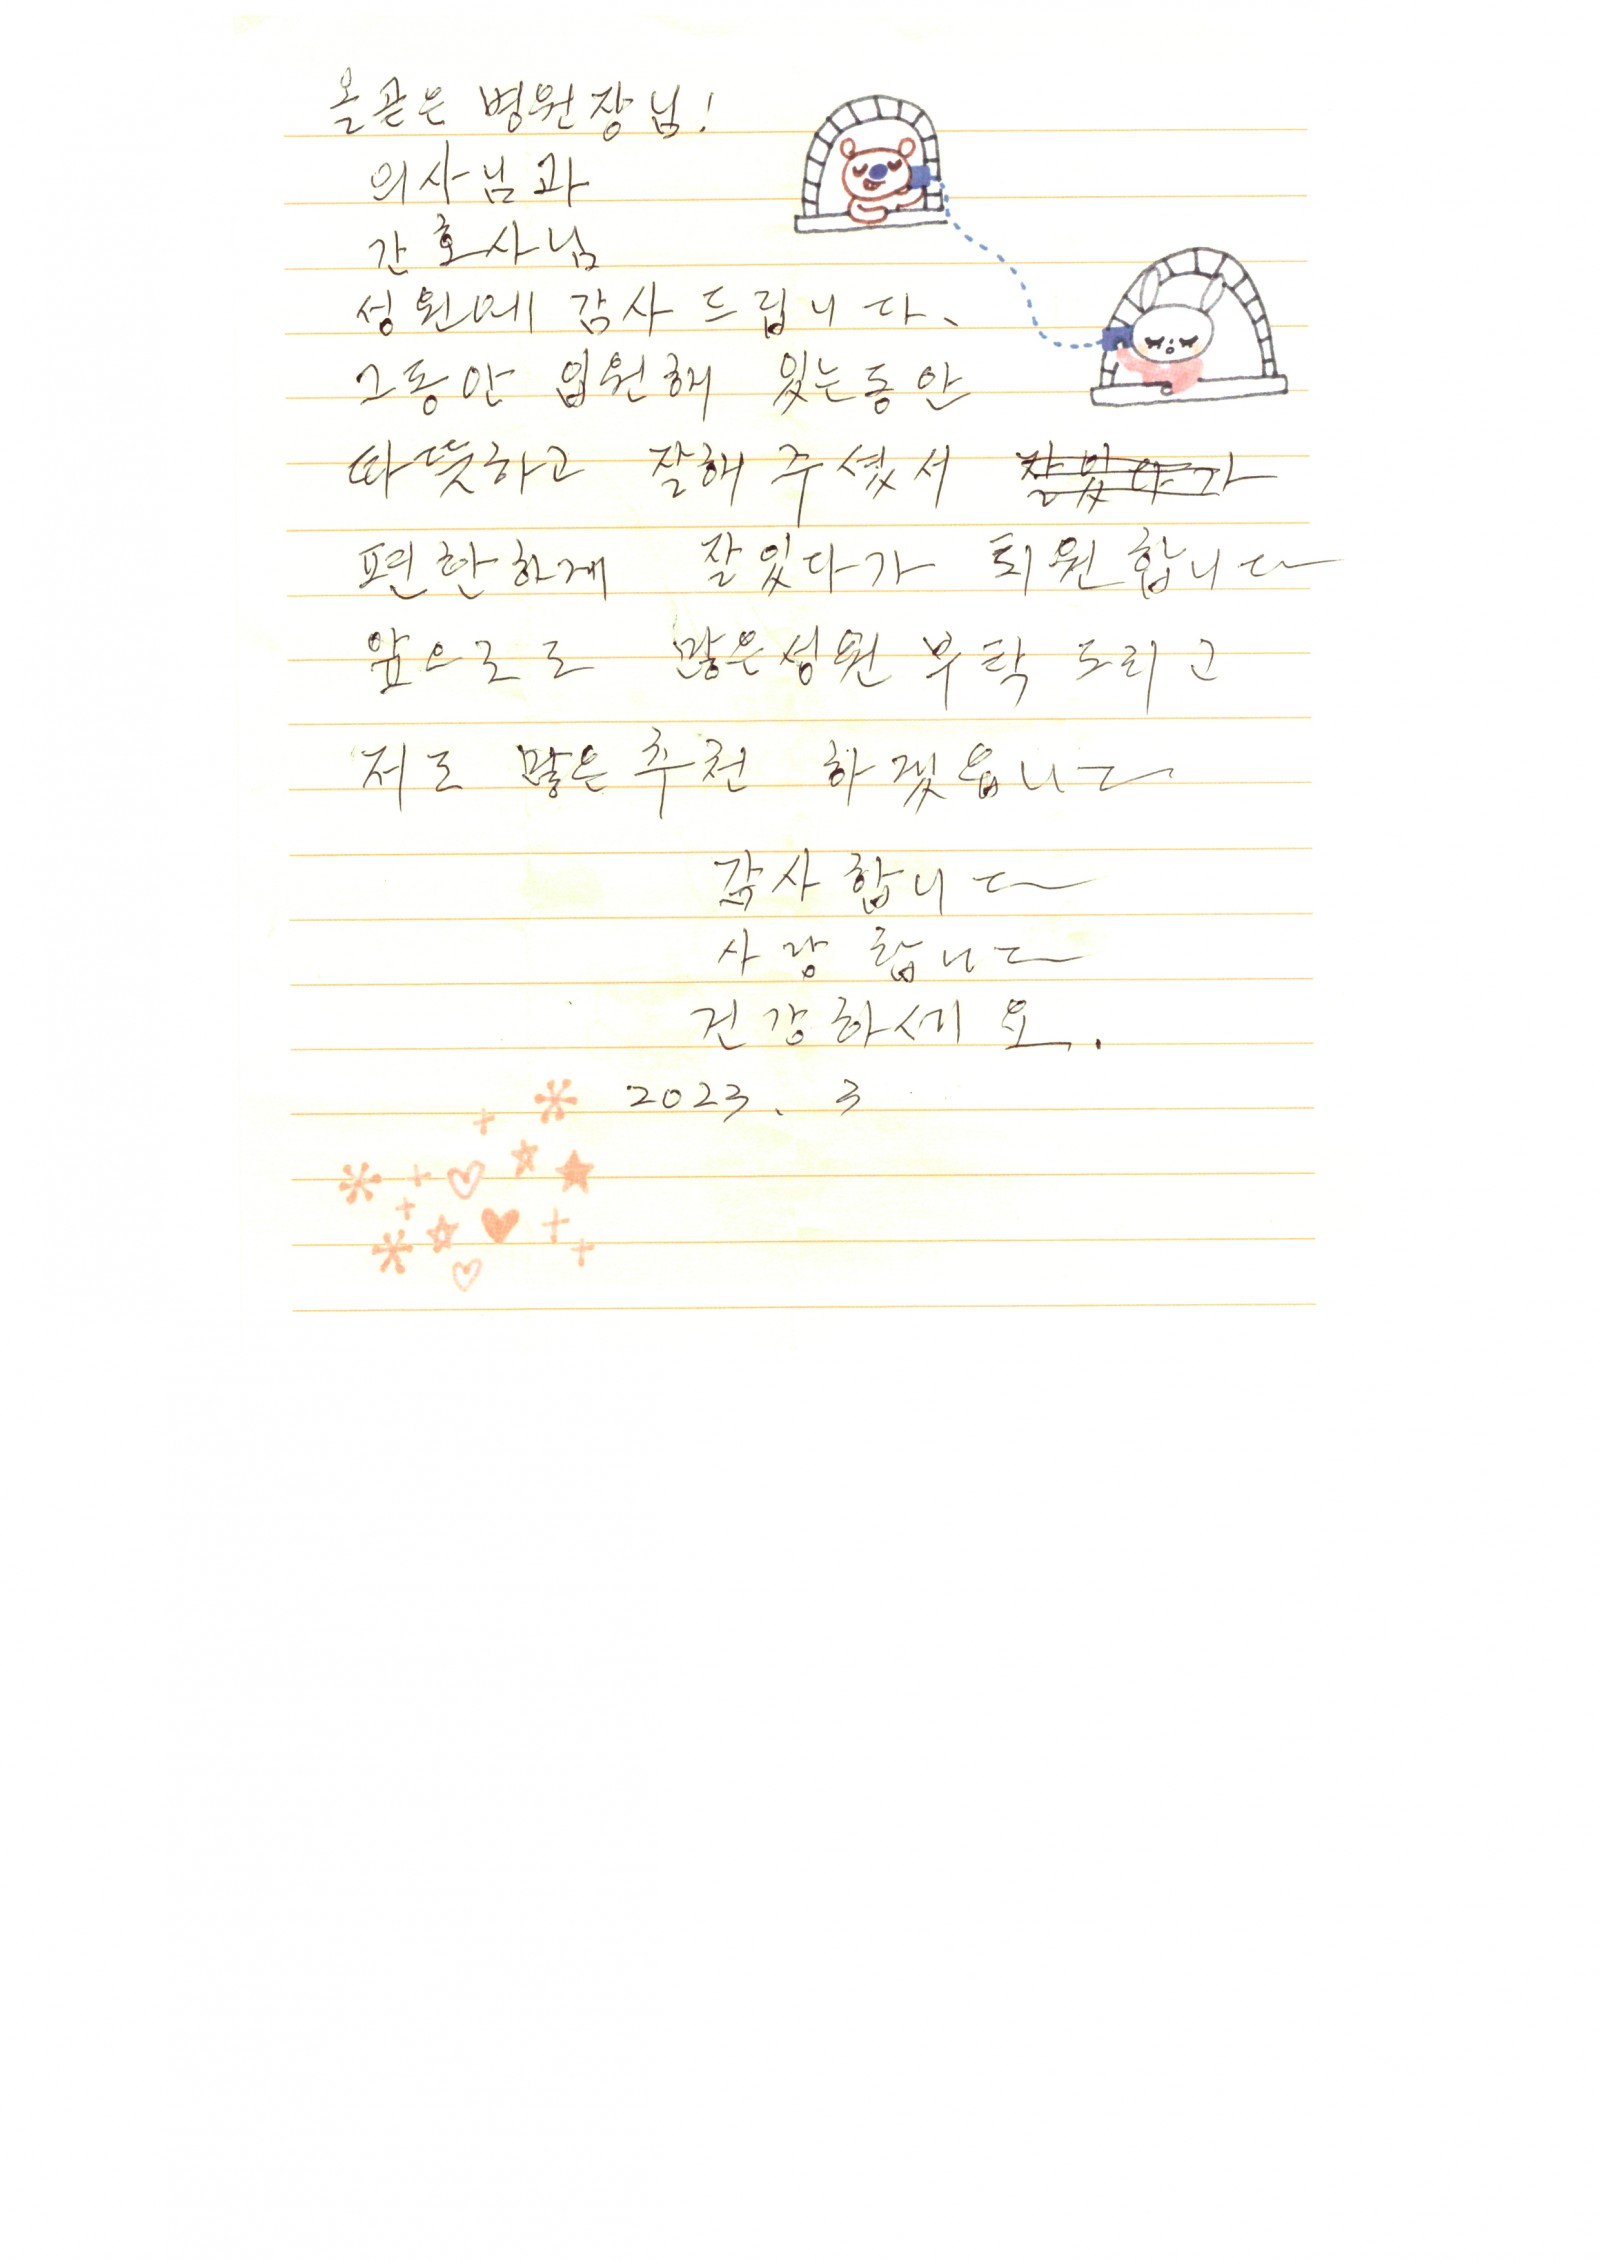 올곧은 병원장님!
의사님과
간호사님
성원에 감사 드립니다.
그동안 입원해 있는동안
따뜻하고 잘해 주셨서 잘있다가
편한하게 잘있다가 퇴원합니다
앞으로도 많은성원 부탁 드리고
저도 많은추천 하겠읍니다
감사합니다
사랑합니다
건강하세요.
2023. 3